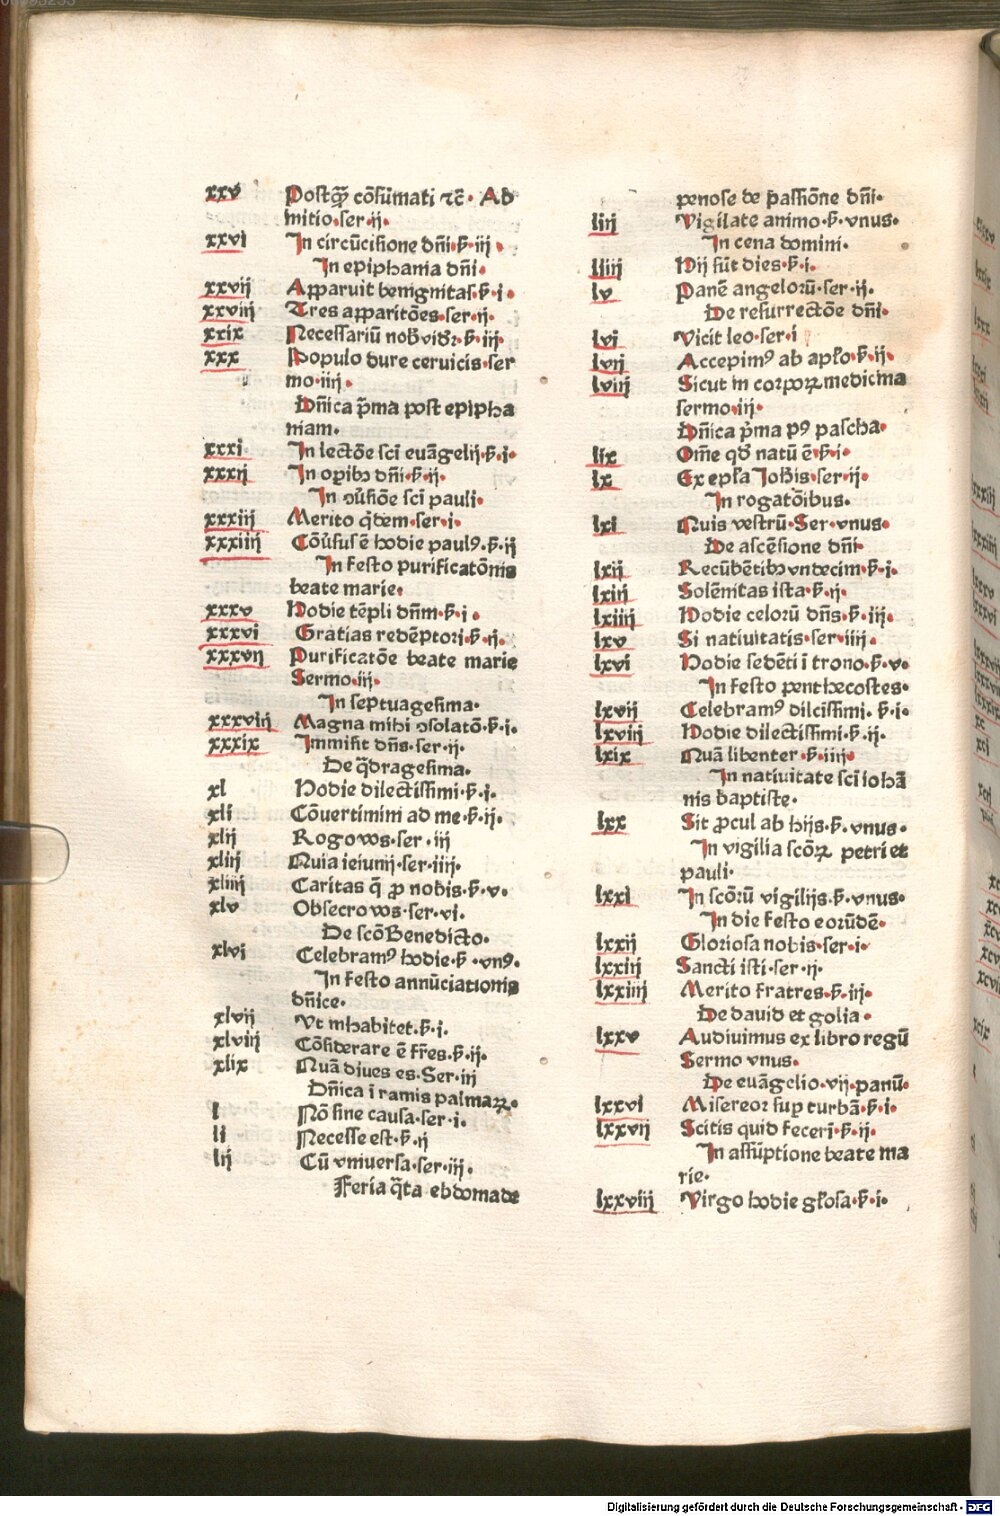 xxv Postq̄ȝ cōsūmati ⁊c̄. Ad
mitio.ser.ij.
xxvi In circūcisione dn̄i.s̄.iij.
In epiphania dn̄i.
xxvij Apparuit benignitas.s̄.i.
xxviij Tres apparitōes.ser.ij.
xxix Necessariū nob̄ vidr̄.s̄.iij.
xxx Populo dure ceruicis.ser
mo.iiij.
Dn̄ica p̄ma post epipha
niam.
xxxi In lectōe scī euāgelij.s̄.i.
xxxij In oꝑibꝫ dn̄i.s̄.ij.
In ꝯūsiōe scī pauli.
xxxiij Merito q̄dem.ser.i.
xxxiiij Cōūsus ē hodie paulꝰ.s̄.ij
In festo purificatōnis
beate marie.
xxxv Hodie tēpli dn̄m.s̄.i.
xxxvi Gratias redēptori.s̄.ij.
xxxvij Purificatōe beate marie
Sermo.iij.
In septuagesima.
xxxviij Magna mihi ꝯsolatō.s̄.i.
xxxix Immisit dn̄s.ser.ij.
De q̄dragesima.
xl Hodie dilectissimi.s̄.i.
xli Cōuertimini ad me.s̄.ij.
xlij Rogo vos.ser.iij
xliij Quia ieiunij.ser.iiij.
xliiij Caritas q̄ ꝓ nobis.s̄.v.
xlv Obsecro vos.ser.vi.
De scō Benedicto.
xlvi Celebramꝰ hodie.s̄.vnꝰ.
In festo annūciationis
dn̄ice.
xlvij Vt inhabitet.s̄.i.
xlviij Cōsiderare ē fr̄es.s̄.ij.
xlix Quā diues es.Ser.iij
Dn̄ica ī ramis palmaꝝ.
l Nō sine causa.ser.i.
li Necesse est.s̄.ij
lij Cū vniuersa.ser.iij.
Feria q̄ta ebdomade
penose de passiōne dn̄i.
liij Vigilate animo.s̄.vnus.
In cena domini.
liiij Hij sūt dies.s̄.i.
lv Panē angelorū.ser.ij.
De resurrectōe dn̄i.
lvi Vicit leo.ser.i
lvij Accepimꝰ ab apl̄o.s̄.ij.
lviij Sicut in corpoꝝ medicina
sermo.iij.
Dn̄ica p̄ma pꝰ pascha.
lix Om̄e qd̄ natū ē.s̄.i.
lx Ex epl̄a Ioh̄is.ser.ij.
In rogatōibus.
lxi Quis vestrū.Ser.vnus.
De ascēsione dn̄i.
lxij Recūbētibꝫ vndecim.s̄.i.
lxiij Solēnitas ista.s̄.ij.
lxiiij Hodie celorū dn̄s.s̄.iij.
lxv Si natiuitatis.ser.iiij.
lxvi Hodie sedēti ī trono.s̄.v.
In festo penthecostes.
lxvij Celebramꝰ dilcissimi.s̄.i.
lxviij Hodie dilectissimi.s̄.ij.
lxix Quā libenter.s̄.iij.
In natiuitate scī iohā
nis baptiste.
lxx Sit ꝓcul ab hijs.s̄.vnus.
In vigilia scōꝝ petri et
pauli.
lxxi In scōrū vigilijs.s̄.vnus.
In die festo eorūdē.
lxxij Gloriosa nobis.ser.i.
lxxiij Sancti isti.ser.ij.
lxxiiij Merito fratres.s̄.iij.
De dauid et golia.
lxxv Audiuimus ex libro regū
Sermo vnus.
De euāgelio.vij.panū.
lxxvi Misereor suꝑ turbā.s̄.i.
lxxvij Scitis quid fecerī.s̄.ij.
In assūptione beate ma
rie.
lxxviij Virgo hodie gl̄osa.s̄.i.
Digitalisierung gefördert durch die Deutsche Forschungsgemeinschaft - DFG